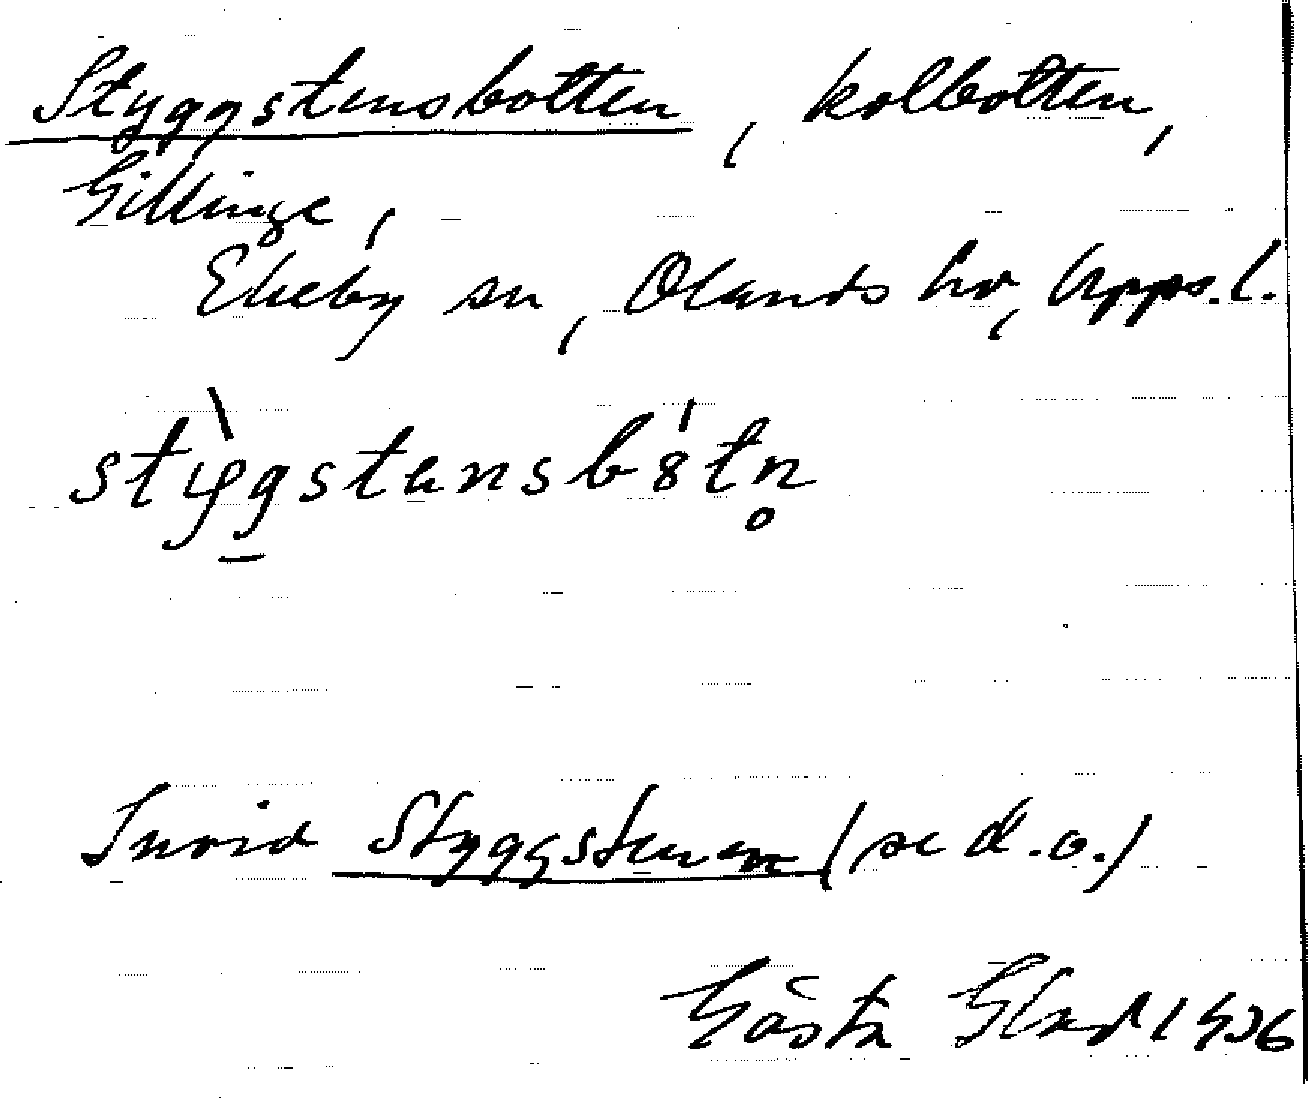 Styggstensbotten, kolbotten,
Gillinge,
Ekeby sn, Olands hd, Upps. l.
stỳggstensbótn̥
Invid Styggstenen (se d.o.)
Gösta Glad 1936